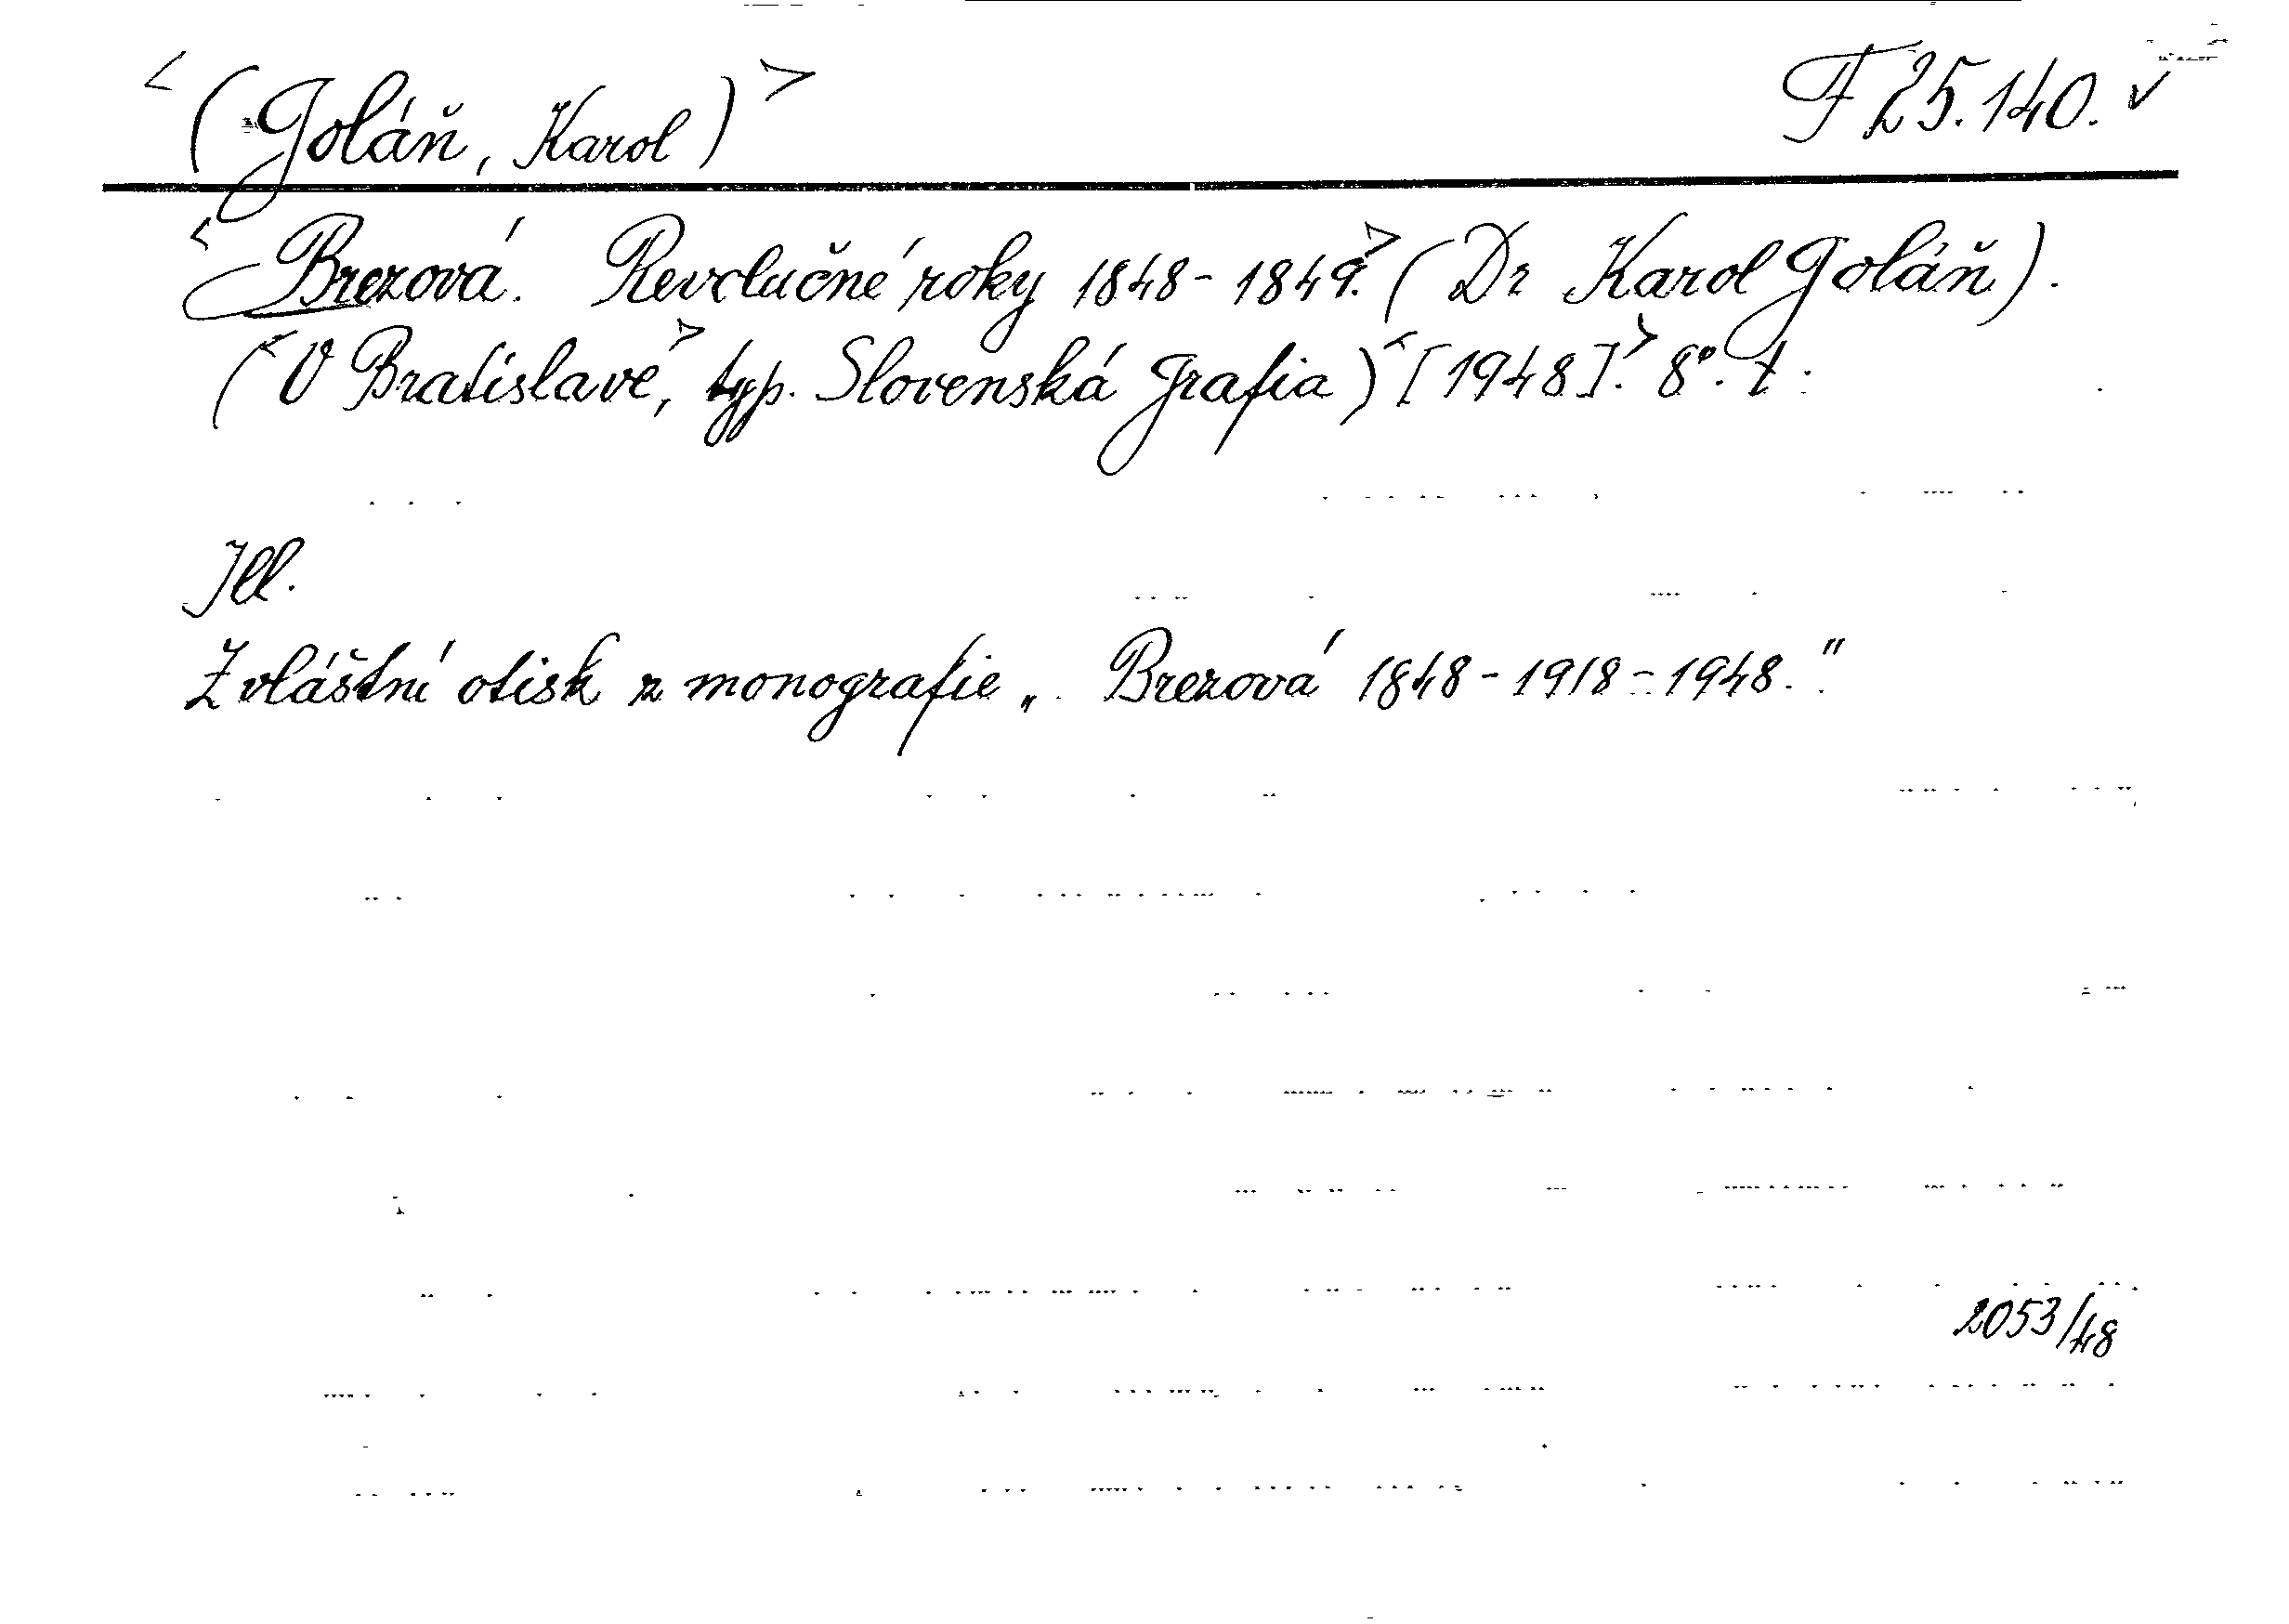 <(Goláň, Karol)> F 25.140. ✓
<Brezová. Revolučné roky 1848-1849.> (Dr Karol Goláň).
(<V Bratislavě,> typ. Slovenská Grafia) <[1948].> 8°. t.
Ill.
Zvláštní otisk z monografie „Brezová 1848-1918-1948."
2053/48